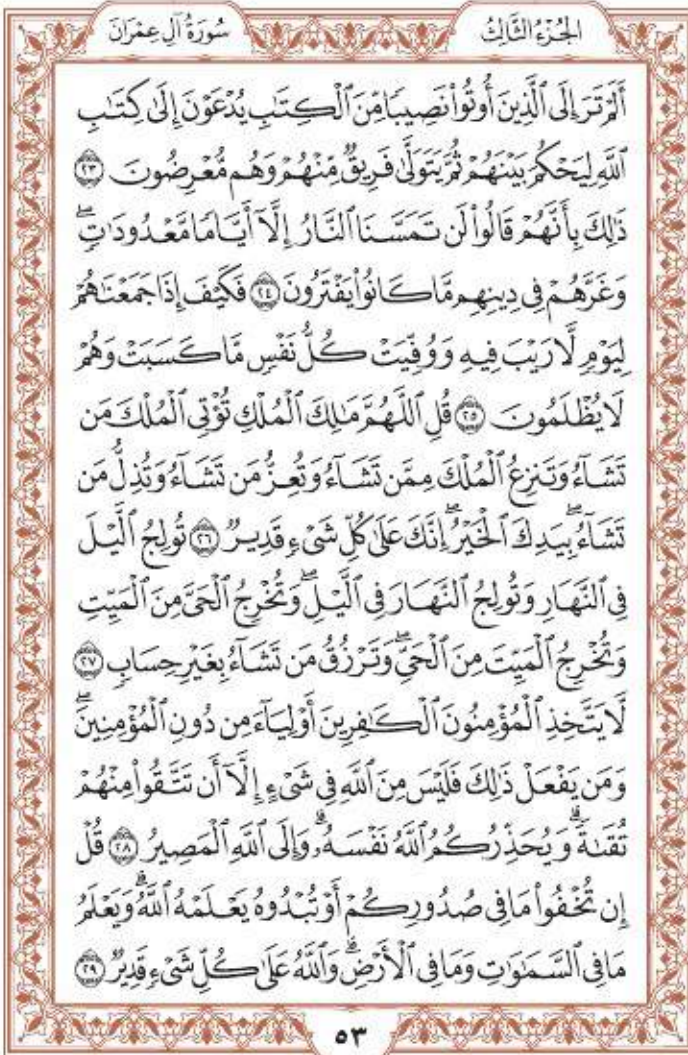 الجُزْءُ الثَّالِثُ
سُورَةُ آلِ عِمْرَانَ
أَلَمْ تَرَ إِلَى ٱلَّذِينَ أُوتُوا۟ نَصِيبًا مِّنَ ٱلْكِتَٰبِ يُدْعَوْنَ إِلَىٰ كِتَٰبِ
ٱللَّهِ لِيَحْكُمَ بَيْنَهُمْ ثُمَّ يَتَوَلَّىٰ فَرِيقٌ مِّنْهُمْ وَهُم مُّعْرِضُونَ ٢٣
ذَٰلِكَ بِأَنَّهُمْ قَالُوا۟ لَن تَمَسَّنَا ٱلنَّارُ إِلَّآ أَيَّامًا مَّعْدُودَٰتٍ ۖ
وَغَرَّهُمْ فِى دِينِهِم مَّا كَانُوا۟ يَفْتَرُونَ ٢٤ فَكَيْفَ إِذَا جَمَعْنَٰهُمْ
لِيَوْمٍ لَّا رَيْبَ فِيهِ وَوُفِّيَتْ كُلُّ نَفْسٍ مَّا كَسَبَتْ وَهُمْ
لَا يُظْلَمُونَ ٢٥ قُلِ ٱللَّهُمَّ مَٰلِكَ ٱلْمُلْكِ تُؤْتِى ٱلْمُلْكَ مَن
تَشَآءُ وَتَنزِعُ ٱلْمُلْكَ مِمَّن تَشَآءُ وَتُعِزُّ مَن تَشَآءُ وَتُذِلُّ مَن
تَشَآءُ ۖ بِيَدِكَ ٱلْخَيْرُ ۖ إِنَّكَ عَلَىٰ كُلِّ شَىْءٍ قَدِيرٌ ٢٦ تُولِجُ ٱلَّيْلَ
فِى ٱلنَّهَارِ وَتُولِجُ ٱلنَّهَارَ فِى ٱلَّيْلِ ۖ وَتُخْرِجُ ٱلْحَىَّ مِنَ ٱلْمَيِّتِ
وَتُخْرِجُ ٱلْمَيِّتَ مِنَ ٱلْحَىِّ ۖ وَتَرْزُقُ مَن تَشَآءُ بِغَيْرِ حِسَابٍ ٢٧
لَّا يَتَّخِذِ ٱلْمُؤْمِنُونَ ٱلْكَٰفِرِينَ أَوْلِيَآءَ مِن دُونِ ٱلْمُؤْمِنِينَ ۖ
وَمَن يَفْعَلْ ذَٰلِكَ فَلَيْسَ مِنَ ٱللَّهِ فِى شَىْءٍ إِلَّآ أَن تَتَّقُوا۟ مِنْهُمْ
تُقَىٰةً ۗ وَيُحَذِّرُكُمُ ٱللَّهُ نَفْسَهُۥ ۗ وَإِلَى ٱللَّهِ ٱلْمَصِيرُ ٢٨ قُلْ
إِن تُخْفُوا۟ مَا فِى صُدُورِكُمْ أَوْ تُبْدُوهُ يَعْلَمْهُ ٱللَّهُ ۗ وَيَعْلَمُ
مَا فِى ٱلسَّمَٰوَٰتِ وَمَا فِى ٱلْأَرْضِ ۗ وَٱللَّهُ عَلَىٰ كُلِّ شَىْءٍ قَدِيرٌ ٢٩
٥٣